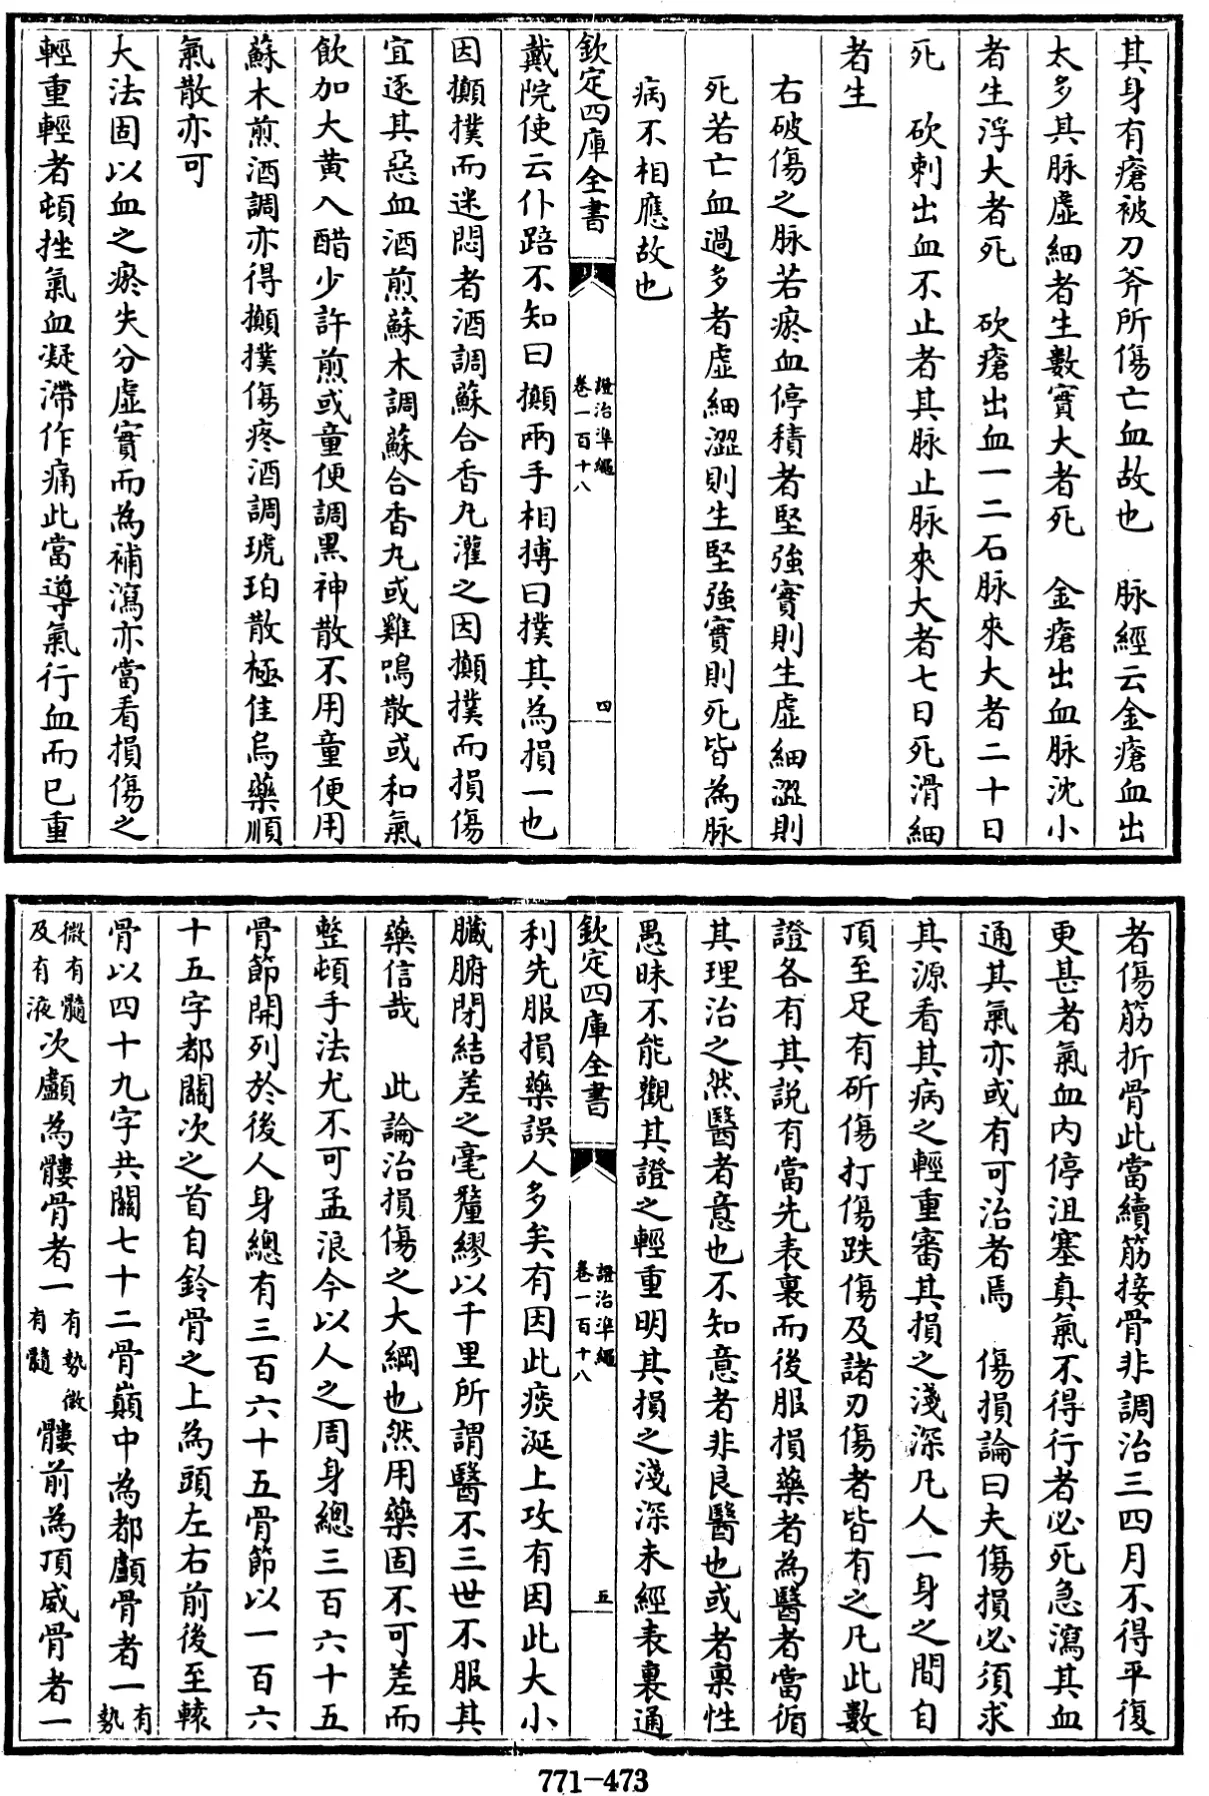 其身有瘡被刀斧所傷亡血故也　脉經云金瘡血出
太多其脉虚細者生數實大者死　金瘡出血脉沈小
者生浮大者死　砍瘡出血一二石脉來大者二十日
死　砍刺出血不止者其脉止脉來大者七日死滑細
者生
右破傷之脉若瘀血停積者堅強實則生虚細澀則
死若亡血過多者虚細澀則生堅強實則死皆為脉
病不相應故也
欽定四庫全書　證治準繩　卷一百十八　四
戴院使云仆踣不知曰攧兩手相搏曰撲其為損一也
因攧撲而迷悶者酒調蘇合香丸灌之因攧撲而損傷
宜逐其惡血酒煎蘇木調蘇合香丸或雞鳴散或和氣
飲加大黄入醋少許煎或童便調黒神散不用童便用
蘇木煎酒調亦得攧撲傷疼酒調琥珀散極佳烏藥順
氣散亦可
大法固以血之瘀失分虚實而為補瀉亦當看損傷之
輕重輕者頓挫氣血凝滯作痛此當導氣行血而已重
者傷筋折骨此當續筋接骨非調治三四月不得平復
更甚者氣血内停沮塞真氣不得行者必死急瀉其血
通其氣亦或有可治者焉　傷損論曰夫傷損必須求
其源看其病之輕重審其損之淺深凡人一身之間自
頂至足有斫傷打傷跌傷及諸刃傷者皆有之凡此數
證各有其説有當先表裏而後服損藥者為醫者當循
其理治之然醫者意也不知意者非良醫也或者稟性
愚昧不能觀其證之輕重明其損之淺深未經表裏通
欽定四庫全書　證治準繩　卷一百十八　五
利先服損藥誤人多矣有因此痰涎上攻有因此大小
臟腑閉結差之毫釐繆以千里所謂醫不三世不服其
藥信哉　此論治損傷之大綱也然用藥固不可差而
整頓手法尤不可孟浪今以人之周身總三百六十五
骨節開列於後人身總有三百六十五骨節以一百六
十五字都關次之首自鈴骨之上為頭左右前後至轅
骨以四十九字共關七十二骨巔中為都顱骨者一有勢
微有髓及有液次顱為髏骨者一有勢微有髓髏前為頂威骨者一
771-473